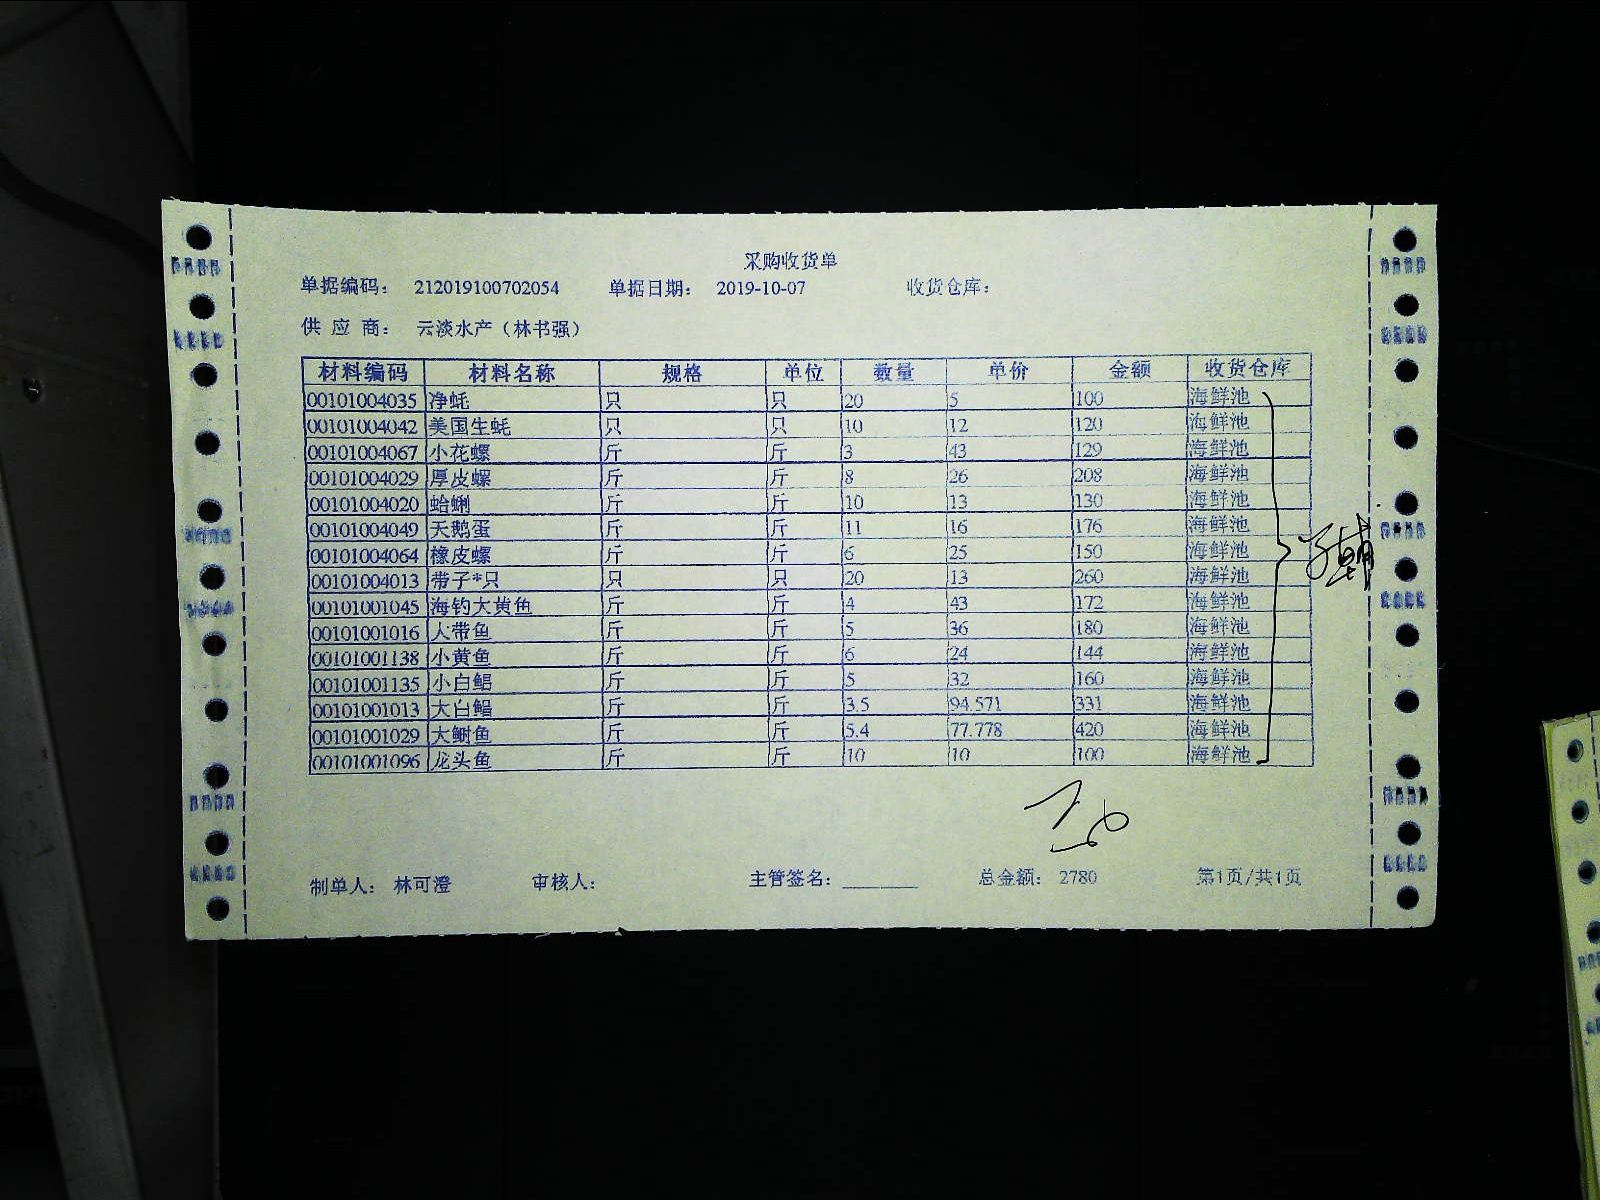 采购收货单
单据编码： 212019100702054 单据日期： 2019-10-07 收货仓库：
供 应 商： 云淡水产（林书强）
材料编码 材料名称 规格 单位 数量 单价 金额 收货仓库
00101004035 净蚝 只 只 20 5 100 海鲜池
00101004042 美国生蚝 只 只 10 12 120 海鲜池
00101004067 小花螺 斤 斤 3 43 129 海鲜池
00101004029 厚皮螺 斤 斤 8 26 208 海鲜池
00101004020 蛤蜊 斤 斤 10 13 130 海鲜池
00101004049 天鹅蛋 斤 斤 11 16 176 海鲜池
00101004064 橡皮螺 斤 斤 6 25 150 海鲜池
00101004013 带子*只 只 只 20 13 260 海鲜池
00101001045 海钓大黄鱼 斤 斤 4 43 172 海鲜池
00101001016 大带鱼 斤 斤 5 36 180 海鲜池
00101001138 小黄鱼 斤 斤 6 24 144 海鲜池
00101001135 小白鲳 斤 斤 5 32 160 海鲜池
00101001013 大白鲳 斤 斤 3.5 94.571 331 海鲜池
00101001029 大鲥鱼 斤 斤 5.4 77.778 420 海鲜池
00101001096 龙头鱼 斤 斤 10 10 100 海鲜池
制单人： 林可澄 审核人： 主管签名： 总金额： 2780 第1页/共1页